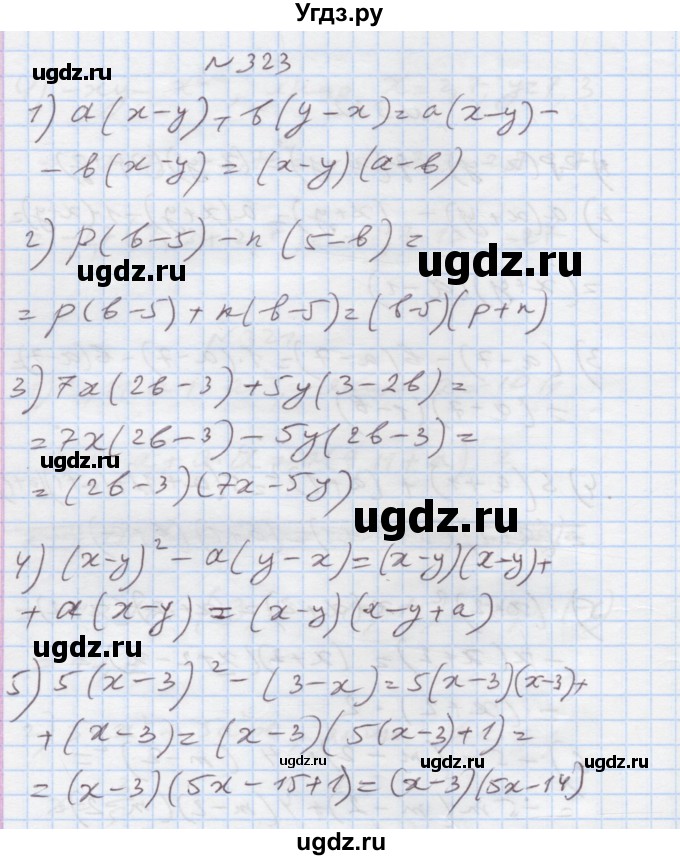 Угдз.ру
№323
ugdz.ru
1) a(x-y)+b(y-x)=a(x-y)-
-b(x-y)=(x-y)(a-b)
2) p(b-5)-n(5-b)=
ugdz.ru ugdz.ru
=p(b-5)+n(b-5)=(b-5)(p+n)
3) 7x(2b-3)+5y(3-2b)=
=7x(2b-3)-5y(2b-3)=
ugdz.ru
=(2b-3)(7x-5y)
ugdz.ru
4) (x-y)²-a(y-x)=(x-y)(x-y)+
+a(x-y)=(x-y)(x-y+a)
ugdz.ru
5) 5(x-3)²-(3-x)=5(x-3)(x-3)+
+(x-3)=(x-3)(5(x-3)+1)=
ugdz.ru ugdz.ru
=(x-3)(5x-15+1)=(x-3)(5x-14)
ugdz.ru